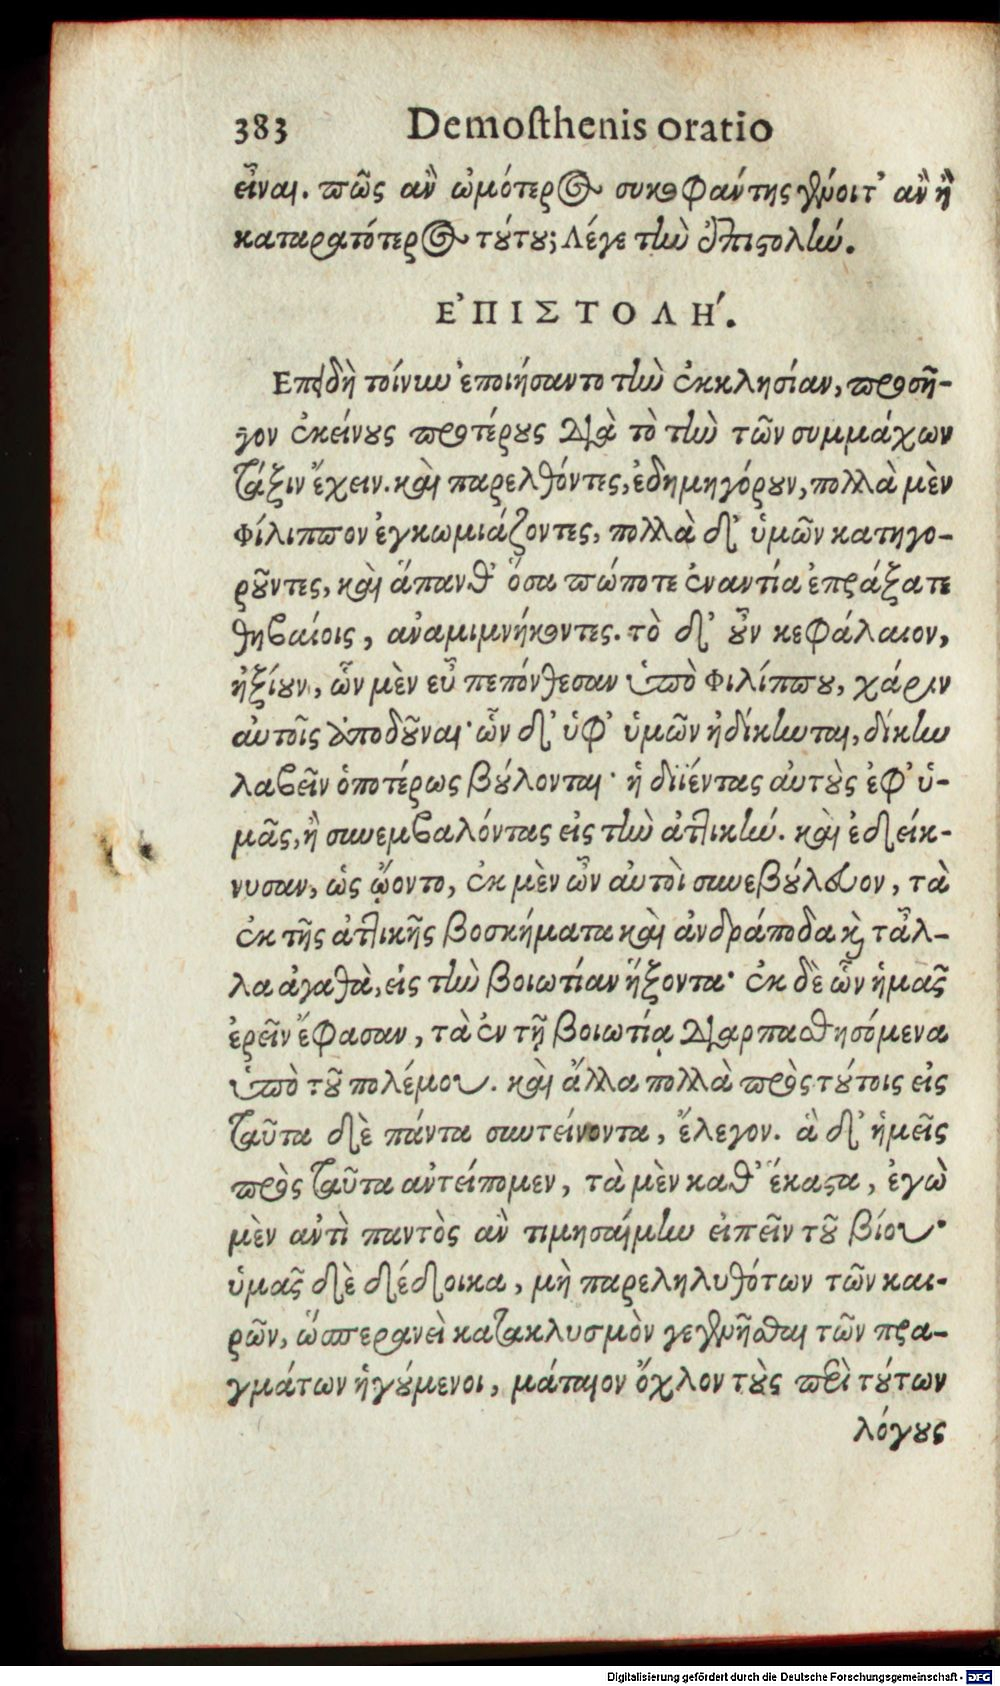 383 Demosthenis oratio
εἶναι. πῶς ἂν ὠμότερος συκοφάντης γένοιτ' ἂν ἢ
καταρατότερος τούτου; Λέγε τὴν ἐπιστολήν.
ἘΠΙΣΤΟΛΉ.
Επειδὴ τοίνυν ἐποιήσαντο τὴν ἐκκλησίαν, προσῆ-
γον ἐκείνους προτέρους διὰ τὸ τὴν τῶν συμμάχων
τάξιν ἔχειν. καὶ παρελθόντες, ἐδημηγόρουν, πολλὰ μὲν
Φίλιππον ἐγκωμιάζοντες, πολλὰ δ' ὑμῶν κατηγο-
ροῦντες, καὶ ἅπανθ' ὅσα πώποτε ἐναντία ἐπράξατε
θηβαίοις, ἀναμιμνήκοντες. τὸ δ' οὖν κεφάλαιον,
ἠξίουν, ὧν μὲν εὖ πεπόνθεσαν ὑπὸ Φιλίππου, χάριν
αὐτοῖς ἀποδοῦναι· ὧν δ' ὑφ' ὑμῶν ἠδίκηνται, δίκην
λαβεῖν ὁποτέρως βούλονται· ἢ διϊέντας αὐτοὺς ἐφ' ὑ-
μᾶς, ἢ συνεμβαλόντας εἰς τὴν ἀττικήν. καὶ ἐδείκ-
νυσαν, ὡς ᾤοντο, ἐκ μὲν ὧν αὐτοὶ συνεβούλευον, τὰ
ἐκ τῆς ἀττικῆς βοσκήματα καὶ ἀνδράποδα καὶ τἆλ-
λα ἀγαθὰ, εἰς τὴν βοιωτίαν ἥξοντα· ἐκ δὲ ὧν ἡμᾶς
ἐρεῖν ἔφασαν, τὰ ἐν τῇ βοιωτίᾳ διαρπασθησόμενα
ὑπὸ τοῦ πολέμου. καὶ ἄλλα πολλὰ πρὸς τούτοις εἰς
ταῦτα δὲ πάντα συντείνοντα, ἔλεγον. ἃ δ' ἡμεῖς
πρὸς ταῦτα ἀντείπομεν, τὰ μὲν καθ' ἕκαστα, ἐγὼ
μὲν ἀντὶ παντὸς ἂν τιμησαίμην εἰπεῖν τοῦ βίου·
ὑμᾶς δὲ δέδοικα, μὴ παρεληλυθότων τῶν και-
ρῶν, ὥσπερανεὶ κατακλυσμὸν γεγενῆσθαι τῶν πρα-
γμάτων ἡγούμενοι, μάταιον ὄχλον τοὺς περὶ τούτων
λόγους
Digitalisierung gefördert durch die Deutsche Forschungsgemeinschaft - DFG